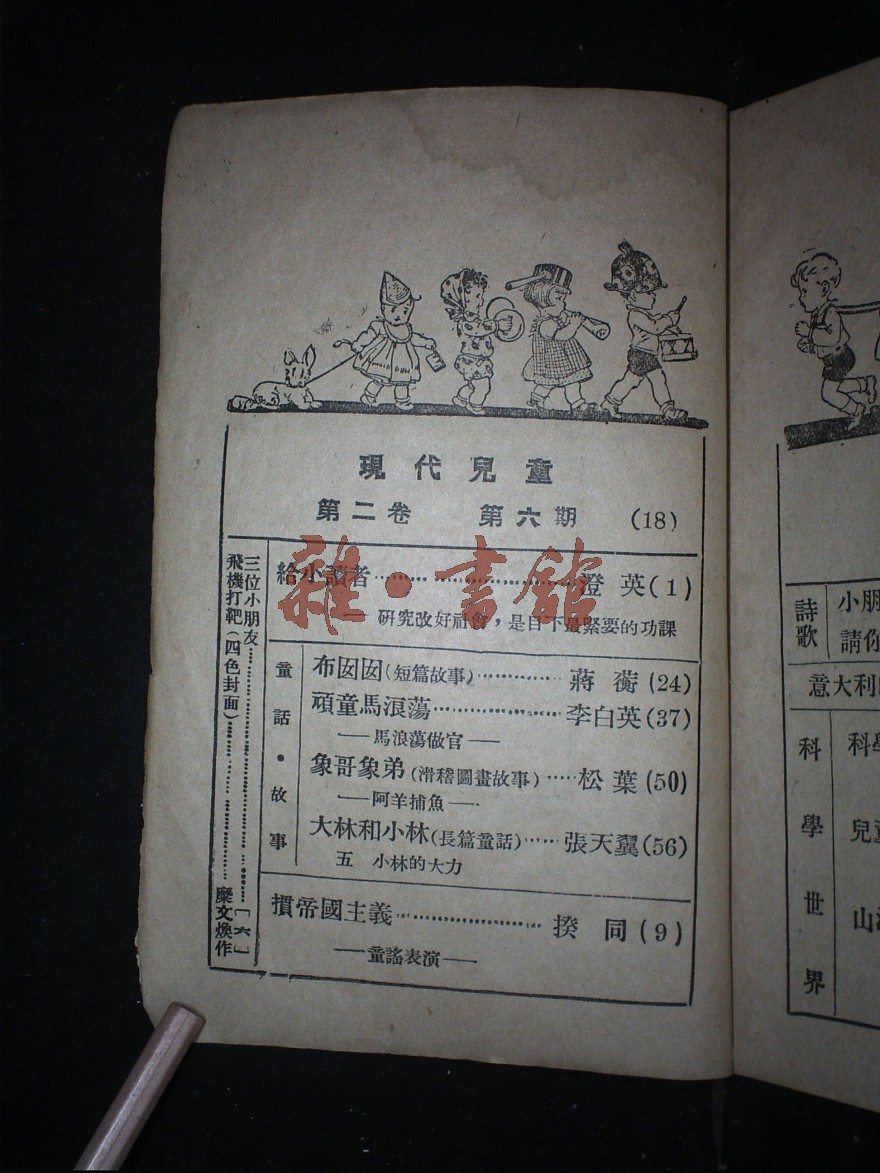 現代兒童
第二卷 第六期 (18)
給小讀者…………………………澄英(1)
研究改好社會，是目下最緊要的功課
童話・故事
布囡囡(短篇故事)……………蔣蘅(24)
頑童馬浪蕩………………………李白英(37)
——馬浪蕩做官——
象哥象弟(滑稽圖畫故事)……松葉(50)
——阿羊捕魚——
大林和小林(長篇童話)……張天翼(56)
五 小林的大力
摜帝國主義………………………揆同(9)
——童謠表演——
三位小朋友……………………………[六]
飛機打靶(四色封面)……………………糜文煥作
詩歌
小朋
請你
意大利
科學世界
科學
兒童
山
雜·書館